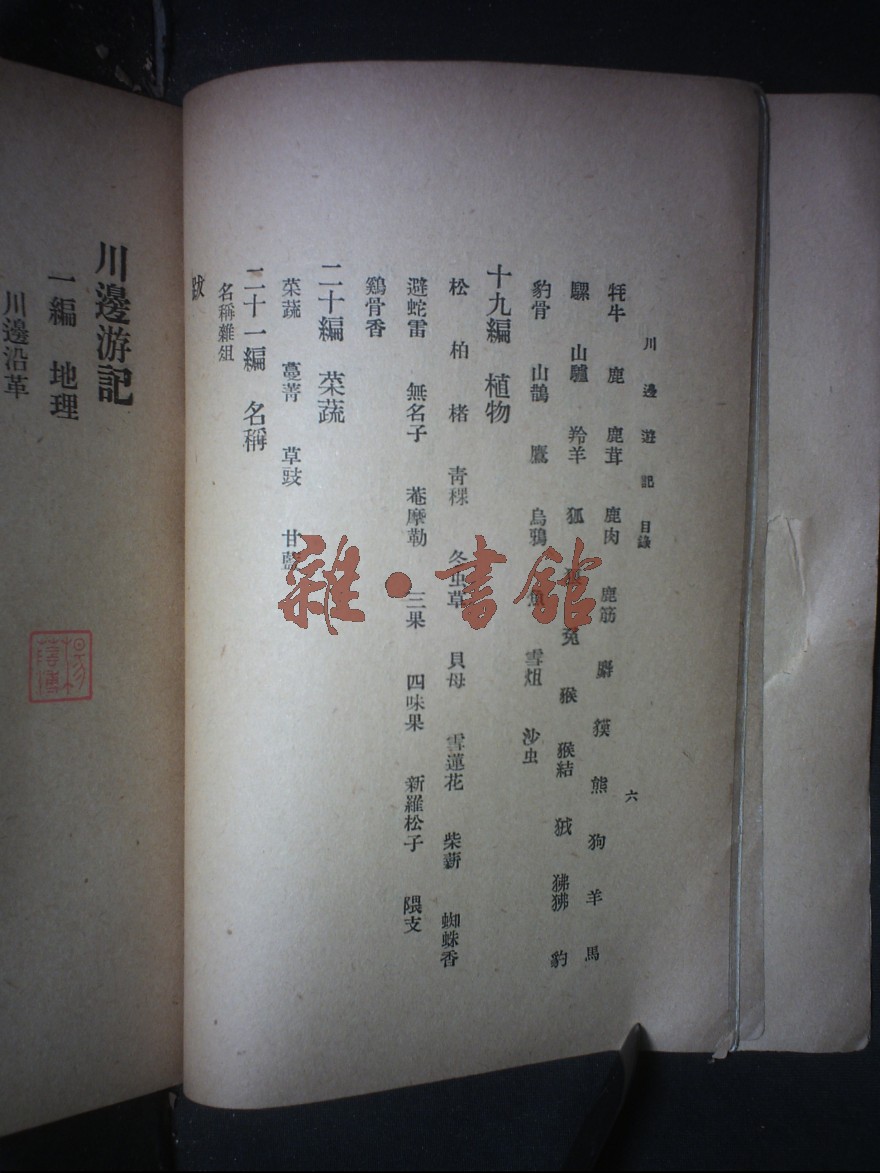 川邊遊記 目錄 六
牦牛 鹿 鹿茸 鹿肉 鹿筋 麝 獏 熊 狗 羊 馬
騾 山驢 羚羊 狐 兔 猴 猴結 狨 狒狒 豹
豹骨 山鵲 鷹 烏鴉 魚 雪蛆 沙虫
十九編 植物
松 柏 楮 青稞 冬虫草 貝母 雪蓮花 柴薪 蜘蛛香
避蛇雷 無名子 菴摩勒 三果 四味果 新羅松子 隈支
鷄骨香
二十編 菜蔬
菜蔬 蔓菁 草豉 甘藍
二十一編 名稱
名稱雜俎
跋
川邊游記
一編 地理
川邊沿革
雜·書館